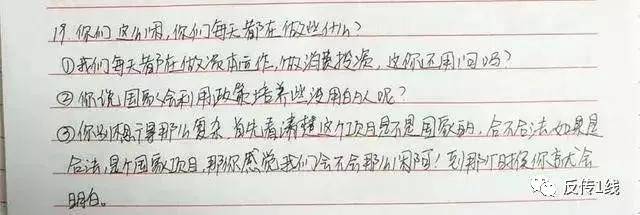 19.你们这么闲,你们每天都在做些什么?
①我们每天都在做资本运作,做消费投资,这你还用问吗?
②你说国家会利用政策培养些没用的人呢?
③你别想得那么复杂,首先看清楚这个项目是不是国家的,合不合法,如果是
合法,是个国家项目,那你感觉我们会不会那么闲阿!到那个时候你就会
明白。
反传1线